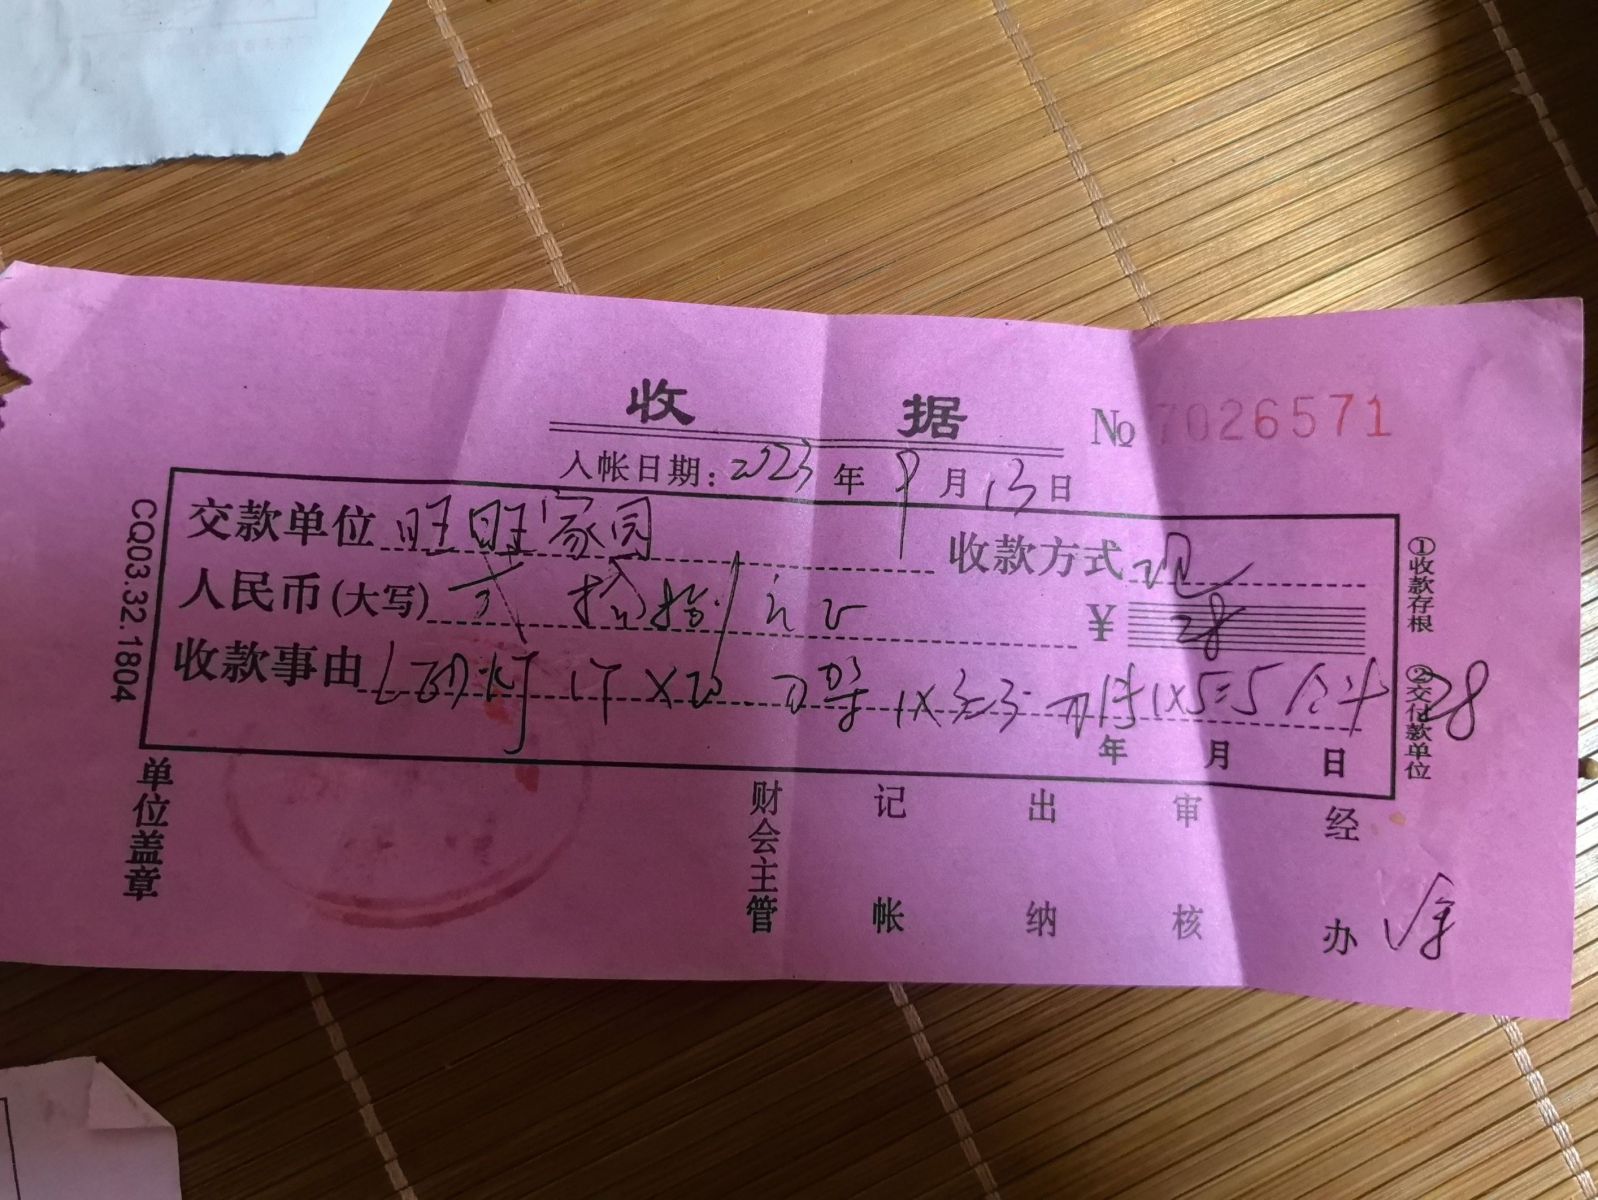 收 据
№ 7026571
入帐日期: 2023 年 9 月 13 日
交款单位 旺旺家园 收款方式 现
人民币(大写) 贰拾捌元 ¥ 28
收款事由 1×5=5 合计28
年 月 日
CQ03.32.1804
①收款存根 ②交付款单位
单位盖章 财会主管 记帐 出纳 审核 经办 徐